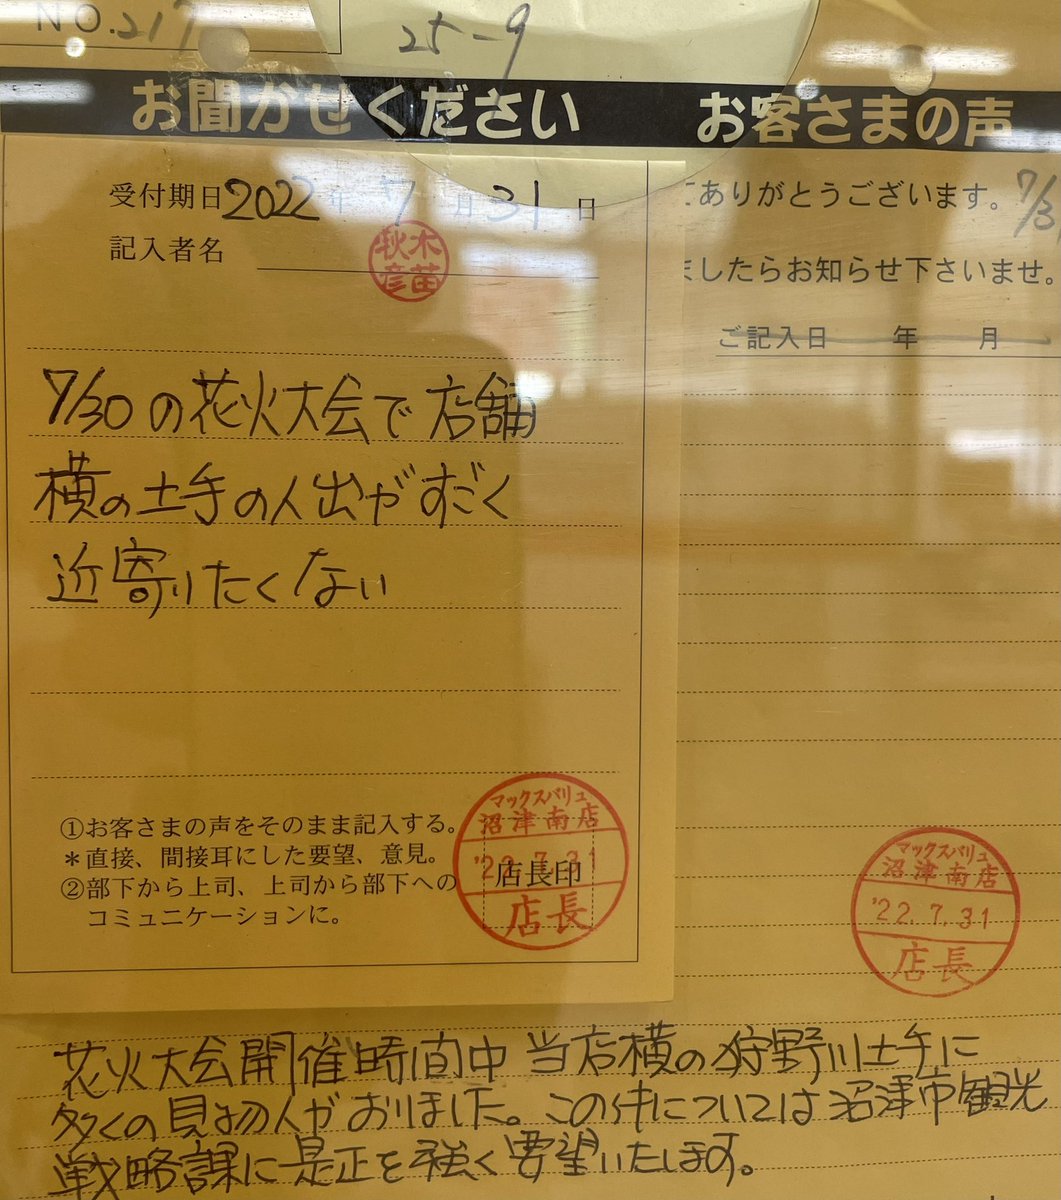 NO.217
25-9
お聞かせください
お客さまの声
受付期日 2022年 7月 31日
記入者名
秋木
彦苗
7/30の花火大会で店舗
横の土手の人出がすごく
近寄りたくない
①お客さまの声をそのまま記入する。
*直接、間接耳にした要望、意見。
②部下から上司、上司から部下への
コミュニケーションに。
マックスバリュ
沼津南店
'22.7.31
店長印
店長
てありがとうございます。
7/31
ましたらお知らせ下さいませ。
ご記入日 年 月
マックスバリュ
沼津南店
'22.7.31
店長
花火大会開催時間中 当店横の狩野川土手に
多くの見物人がおりました。この件については沼津市観光
戦略課に是正を強く要望いたします。